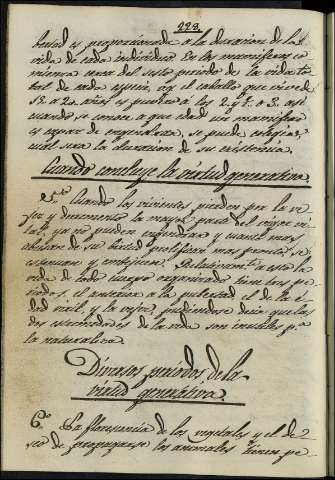 223.
bertad es proporcionada a la duracion de la
vida de cada individuo. En los mamiferos co
mienza cerca del sesto periodo de la vida to
tal de cada especie, eg. el caballo que vive de
á 20. años es puvero á los 2. y ½. o 3. asi
cuando se conoce a que edad un mamifero
es capaz de engendrar, se puede colegir
cual sera la duracion de su existencia.
Cuando concluye la virtud generativa.
5.º Cuando los vivientes pierden por la ve
jez y duramente la mayor parte del vigor vi
tal, ya no pueden engendrar y cuanto mas
abusan de su virtud prolifica mas pronto se
estenuan y embejecen. Relativamte a esto la
vida de todo cuerpo organizado tiene tres pe
riodos, el anterior a la pubertad, el de la e
dad viril, y la vejez, pudiendose decir que las
dos estremidades de la vida son inutiles pa
la naturaleza.
Diversos periodos de la
virtud generativa.
6.º La florescencia de los vegetales y el de
seo de propagarse los animales tienen pe